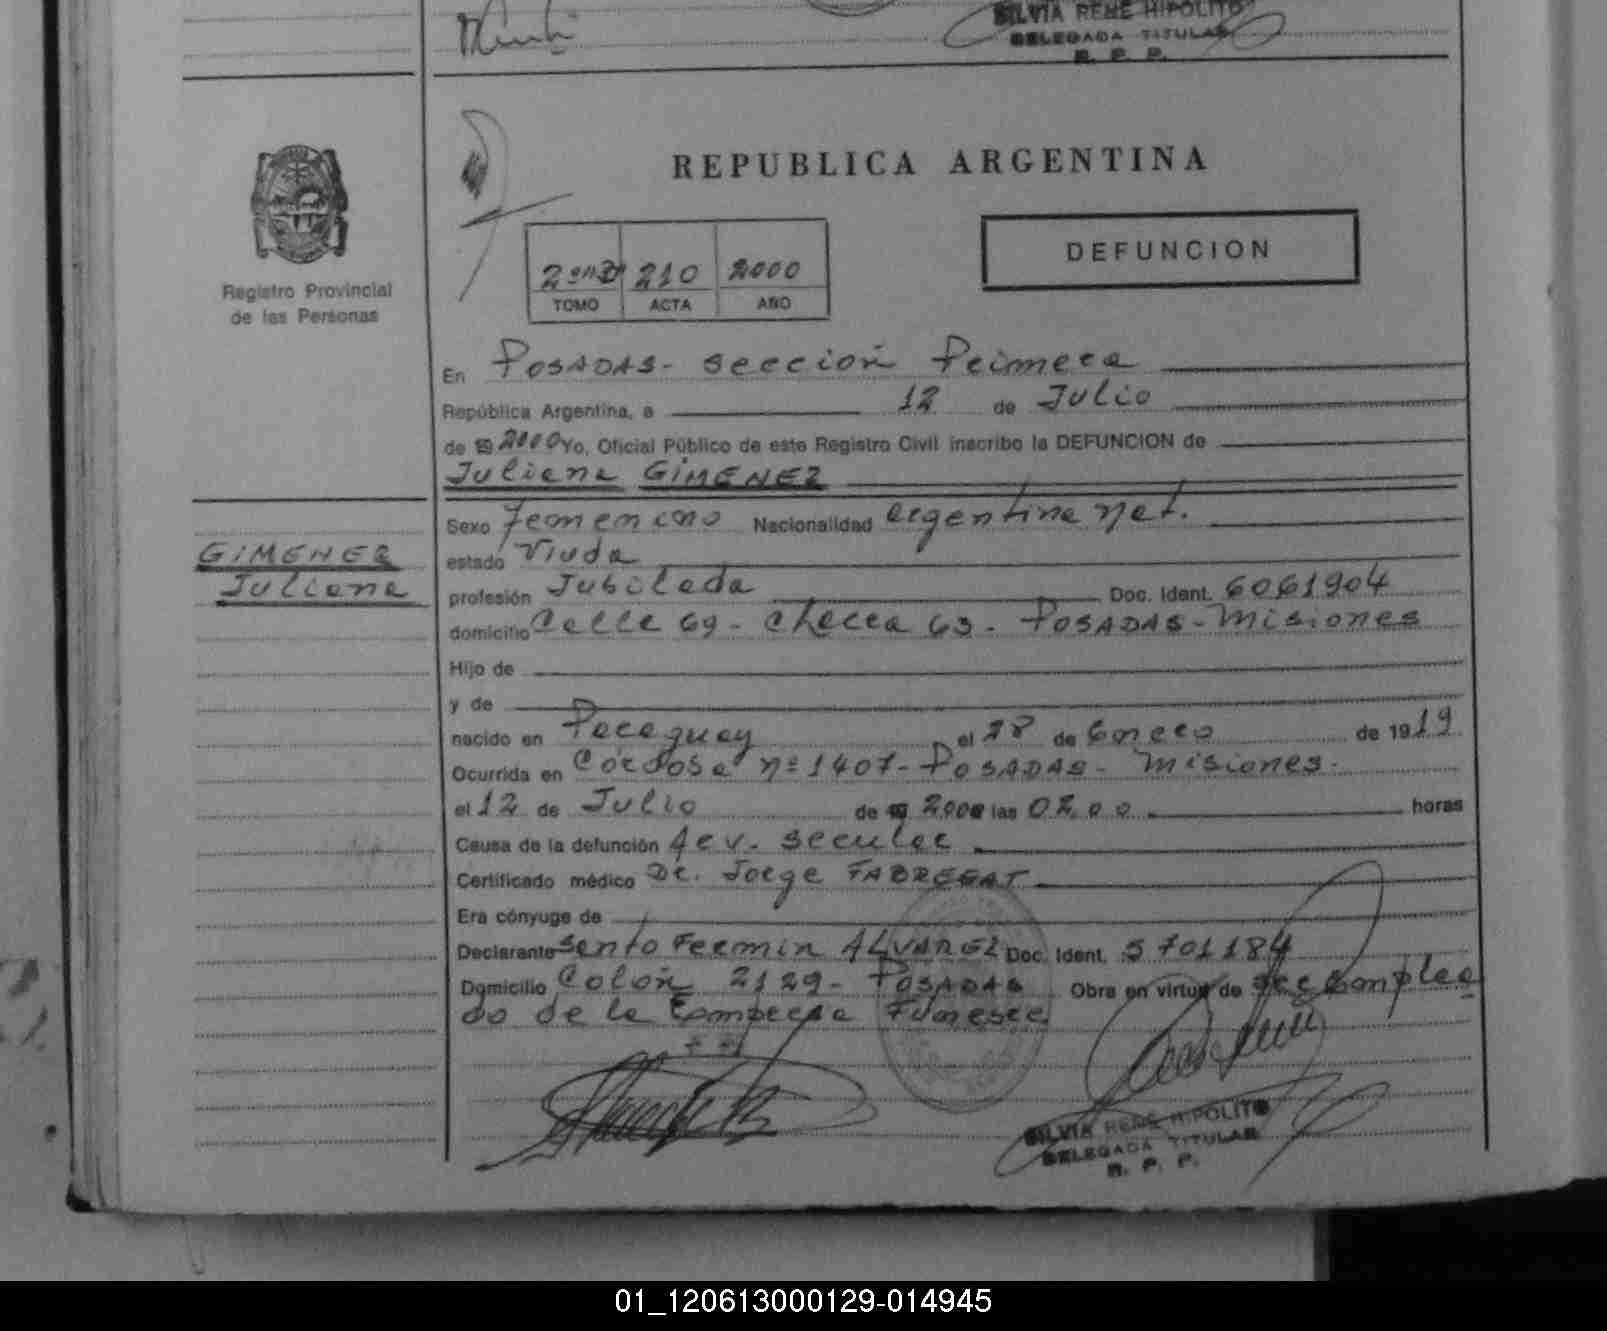 SILVIA RENE HIPOLITO
DELEGADA TITULAR
R. P. P.
REPUBLICA ARGENTINA
DEFUNCION
210 2000
TOMO ACTA AÑO
Registro Provincial
de las Personas
En POSADAS- Sección Primera
República Argentina, a 12 de Julio
de 2000 Yo, Oficial Público de este Registro Civil inscribo la DEFUNCION de
Juliana GIMENEZ
Sexo Femenino Nacionalidad argentina nat.
GIMENEZ
Juliana
estado Viuda
profesión Jubilada Doc. Ident. 6061904
domicilio Calle 69- Chacra 63- POSADAS- Misiones
Hijo de
y de
nacido en Paraguay el 28 de Enero de 1919
Ocurrida en Córdoba nº 1407- POSADAS- Misiones.
el 12 de Julio de 2000 las 02,00 horas
Causa de la defunción
Certificado médico Dr. Jorge FABREGAT
Era cónyuge de
Declarante Santo Fermin ALVAREZ Doc. Ident. 5701184
Domicilio Colón 2129- POSADAS Obra en virtud de ser Emplea
do de la Empresa Funeraria
SILVIA RENE HIPOLITO
DELEGADA TITULAR
R. P. P.
01_120613000129-014945